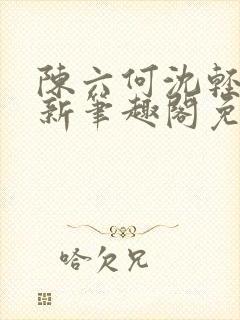 陳六何沈輕
新筆趣閣免
哈欠兄